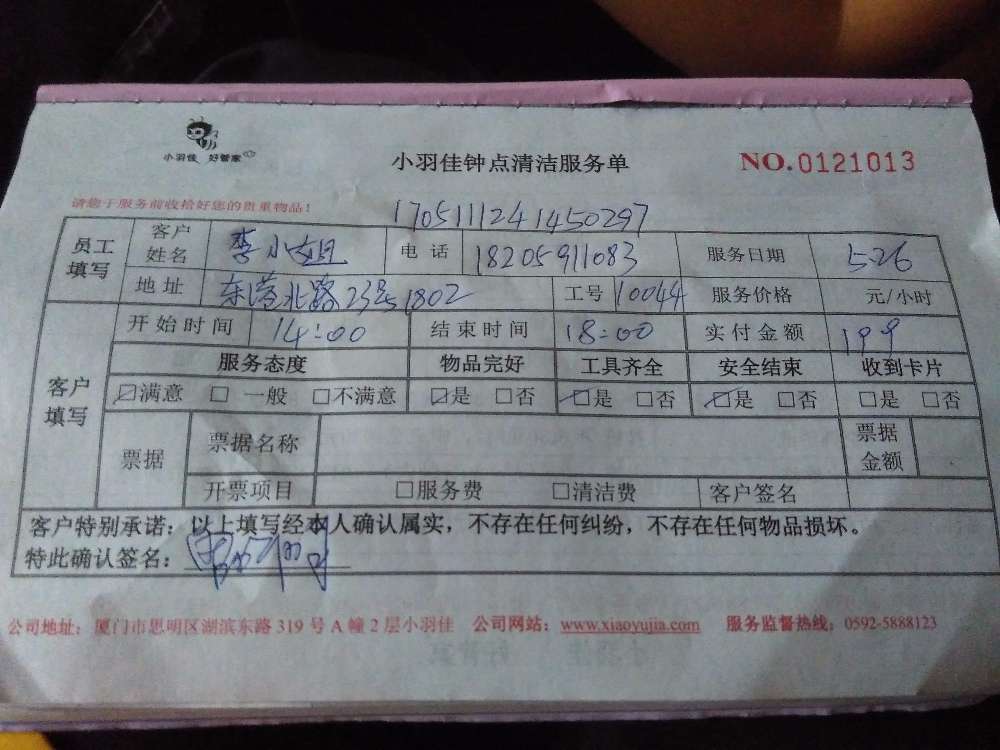 小羽佳 好管家
小羽佳钟点清洁服务单
NO.0121013
请您于服务前收拾好您的贵重物品！
1705111241450297
员工填写 客户姓名 李小姐 电话 18205911083 服务日期 5.26
地址 东港北路23号1802 工号 10044 服务价格 元/小时
客户填写 开始时间 14:00 结束时间 18:00 实付金额 199
服务态度 物品完好 工具齐全 安全结束 收到卡片
☑满意 □一般 □不满意 ☑是 □否 ☑是 □否 ☑是 □否 □是 □否
票据 票据名称 票据金额
开票项目 □服务费 □清洁费 客户签名
客户特别承诺：以上填写经本人确认属实，不存在任何纠纷，不存在任何物品损坏。
特此确认签名：
公司地址：厦门市思明区湖滨东路319号A幢2层小羽佳 公司网站：www.xiaoyujia.com 服务监督热线：0592-5888123